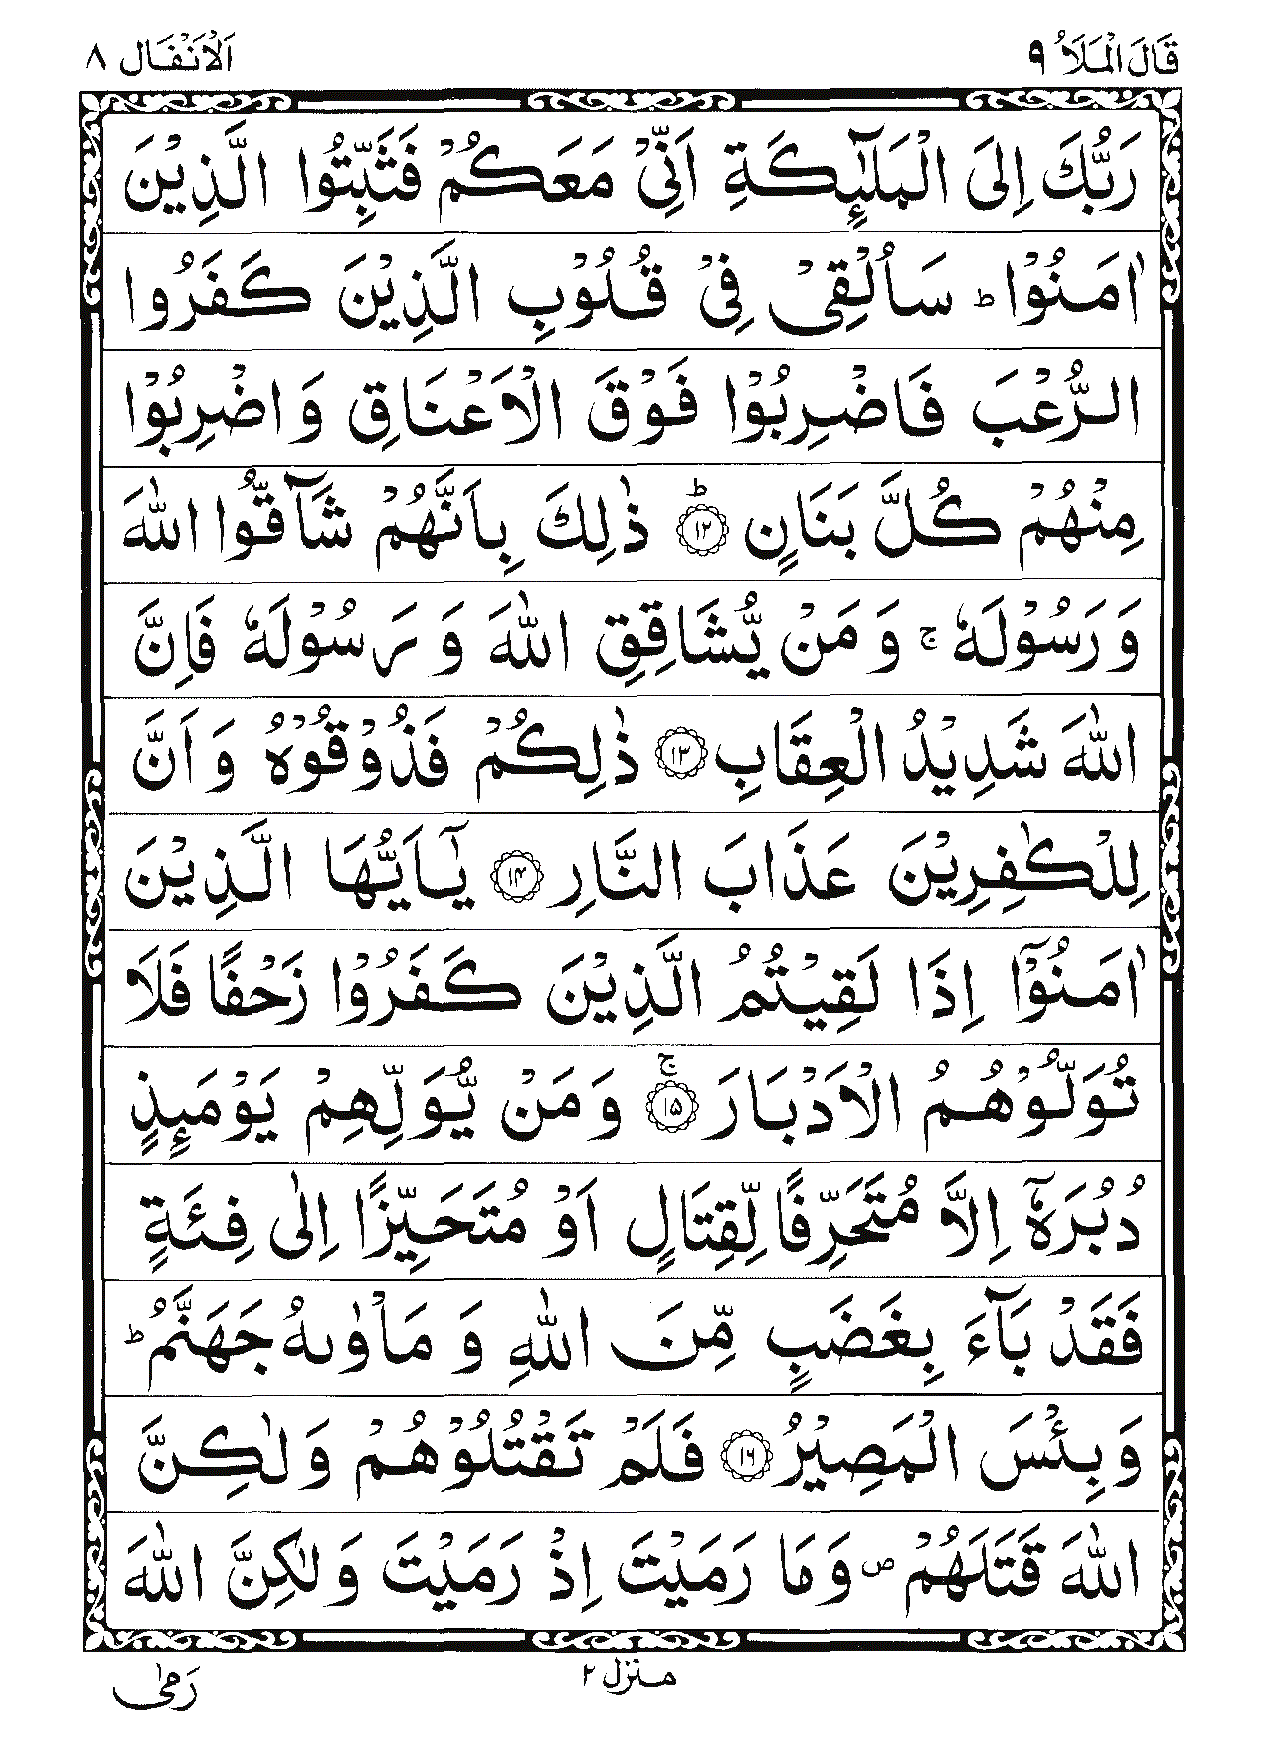 قَالَ الْمَلَاُ ٩
اَلْاَنْفَال ٨
رَبُّكَ اِلَى الْمَلٰٓئِكَةِ اَنِّىْ مَعَكُمْ فَثَبِّتُوا الَّذِيْنَ
اٰمَنُوْا ؕ سَاُلْقِىْ فِىْ قُلُوْبِ الَّذِيْنَ كَفَرُوا
الرُّعْبَ فَاضْرِبُوْا فَوْقَ الْاَعْنَاقِ وَاضْرِبُوْا
مِنْهُمْ كُلَّ بَنَانٍ ؕ ﴿١٢﴾ ذٰلِكَ بِاَنَّهُمْ شَآقُّوا اللّٰهَ
وَرَسُوْلَهٗ ۚ وَمَنْ يُّشَاقِقِ اللّٰهَ وَرَسُوْلَهٗ فَاِنَّ
اللّٰهَ شَدِيْدُ الْعِقَابِ ﴿١٣﴾ ذٰلِكُمْ فَذُوْقُوْهُ وَاَنَّ
لِلْكٰفِرِيْنَ عَذَابَ النَّارِ ﴿١٤﴾ يٰٓاَيُّهَا الَّذِيْنَ
اٰمَنُوْٓا اِذَا لَقِيْتُمُ الَّذِيْنَ كَفَرُوْا زَحْفًا فَلَا
تُوَلُّوْهُمُ الْاَدْبَارَ ۚ ﴿١٥﴾ وَمَنْ يُّوَلِّهِمْ يَوْمَئِذٍ
دُبُرَهٗۤ اِلَّا مُتَحَرِّفًا لِّقِتَالٍ اَوْ مُتَحَيِّزًا اِلٰى فِئَةٍ
فَقَدْ بَآءَ بِغَضَبٍ مِّنَ اللّٰهِ وَمَاْوٰىهُ جَهَنَّمُ ؕ
وَبِئْسَ الْمَصِيْرُ ﴿١٦﴾ فَلَمْ تَقْتُلُوْهُمْ وَلٰكِنَّ
اللّٰهَ قَتَلَهُمْ ۪ وَمَا رَمَيْتَ اِذْ رَمَيْتَ وَلٰكِنَّ اللّٰهَ
منزل ٢
رَمٰى